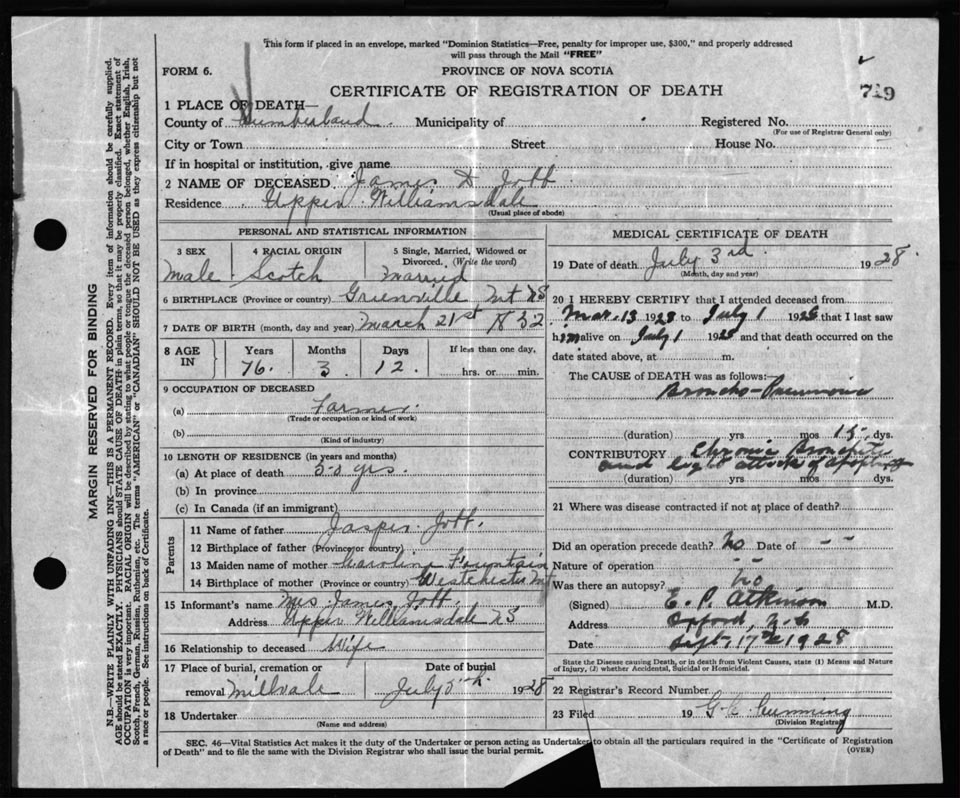 This form if placed in an envelope, marked "Dominion Statistics—Free, penalty for improper use, $300," and properly addressed
will pass through the Mail "FREE"
FORM 6.
PROVINCE OF NOVA SCOTIA
CERTIFICATE OF REGISTRATION OF DEATH
719
1 PLACE OF DEATH—
County of Cumberland Municipality of Registered No.
(For use of Registrar General only)
City or Town Street House No.
If in hospital or institution, give name
2 NAME OF DECEASED James D Jott
Residence Upper Williamsdale
(Usual place of abode)
PERSONAL AND STATISTICAL INFORMATION
3 SEX 4 RACIAL ORIGIN 5 Single, Married, Widowed or
Divorced. (Write the word)
Male Scotch Married
6 BIRTHPLACE (Province or country) Greenville Mt NS
7 DATE OF BIRTH (month, day and year) March 21st 1852
8 AGE IN Years Months Days If less than one day,
76. 3 12. hrs. or min.
9 OCCUPATION OF DECEASED
(a) Farmer
(Trade or occupation or kind of work)
(b)
(Kind of industry)
10 LENGTH OF RESIDENCE (in years and months)
(a) At place of death 50 yrs.
(b) In province
(c) In Canada (if an immigrant)
Parents
11 Name of father Jasper Jott.
12 Birthplace of father (Province or country)
13 Maiden name of mother Caroline Fountain
14 Birthplace of mother (Province or country) Westchester Mt
15 Informant's name Mrs James Jott
Address Upper Williamsdale NS
16 Relationship to deceased Wife
17 Place of burial, cremation or Date of burial
removal Millvale July 5th 1928
18 Undertaker
(Name and address)
MEDICAL CERTIFICATE OF DEATH
19 Date of death July 3rd 1928.
(Month, day and year)
20 I HEREBY CERTIFY that I attended deceased from
Mar. 13 1928 to July 1 1928 that I last saw
him alive on July 1 1928 and that death occurred on the
date stated above, at m.
The CAUSE of DEATH was as follows:—
Broncho-Pneumonia
(duration) yrs mos 15 dys.
CONTRIBUTORY Chronic Bronchitis
and light attack of apoplexy
(duration) yrs mos dys.
21 Where was disease contracted if not at place of death?
Did an operation precede death? No Date of - -
Nature of operation - -
Was there an autopsy? No
(Signed) E. P. Atkinson M.D.
Address Oxford, N.S.
Date Sept 17th 1928
State the Disease causing Death, or in death from Violent Causes, state (1) Means and Nature
of Injury, (2) whether Accidental, Suicidal or Homicidal.
22 Registrar's Record Number
23 Filed 19 Cumming
(Division Registrar)
SEC. 46—Vital Statistics Act makes it the duty of the Undertaker or person acting as Undertaker to obtain all the particulars required in the "Certificate of Registration
of Death" and to file the same with the Division Registrar who shall issue the burial permit. (OVER)
MARGIN RESERVED FOR BINDING
N.B.—WRITE PLAINLY WITH UNFADING INK—THIS IS A PERMANENT RECORD. Every item of information should be carefully supplied.
AGE should be stated EXACTLY. PHYSICIANS should STATE CAUSE OF DEATH in plain terms, so that it may be properly classified. Exact statement of
OCCUPATION is very important. RACIAL ORIGIN will be described by stating to what people or tongue the deceased person belonged, whether English, Irish,
Scotch, French, German, Russian, Ruthenian, etc. The terms "AMERICAN" or "CANADIAN" SHOULD NOT BE USED as they express citizenship but not
a race or people. See instructions on back of Certificate.